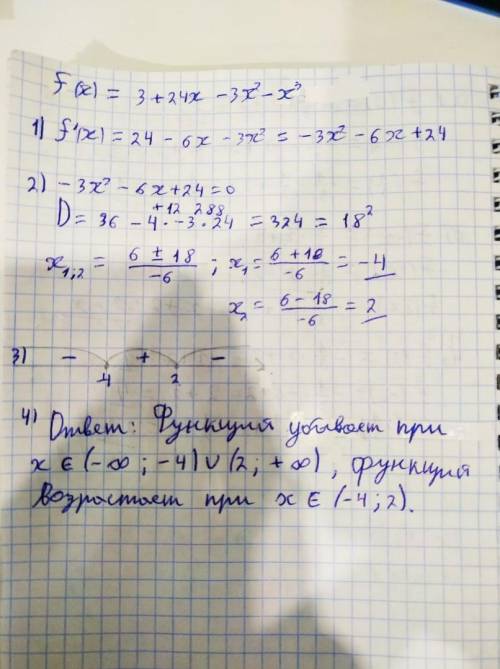 f(x) = 3 + 24x - 3x² - x³
1) f'(x) = 24 - 6x - 3x² = -3x² - 6x + 24
2) -3x² - 6x + 24 = 0
+12 288
D = 36 - 4 · -3 · 24 = 324 = 18²
x₁,₂ = (6 ± 18)/-6 ; x₁ = (6 + 18)/-6 = -4
x₂ = (6 - 18)/-6 = 2
3) - + -
-4 2
4) Ответ: Функция убывает при
x ∈ (-∞; -4) ∪ (2; +∞), функция
возрастает при x ∈ (-4; 2).